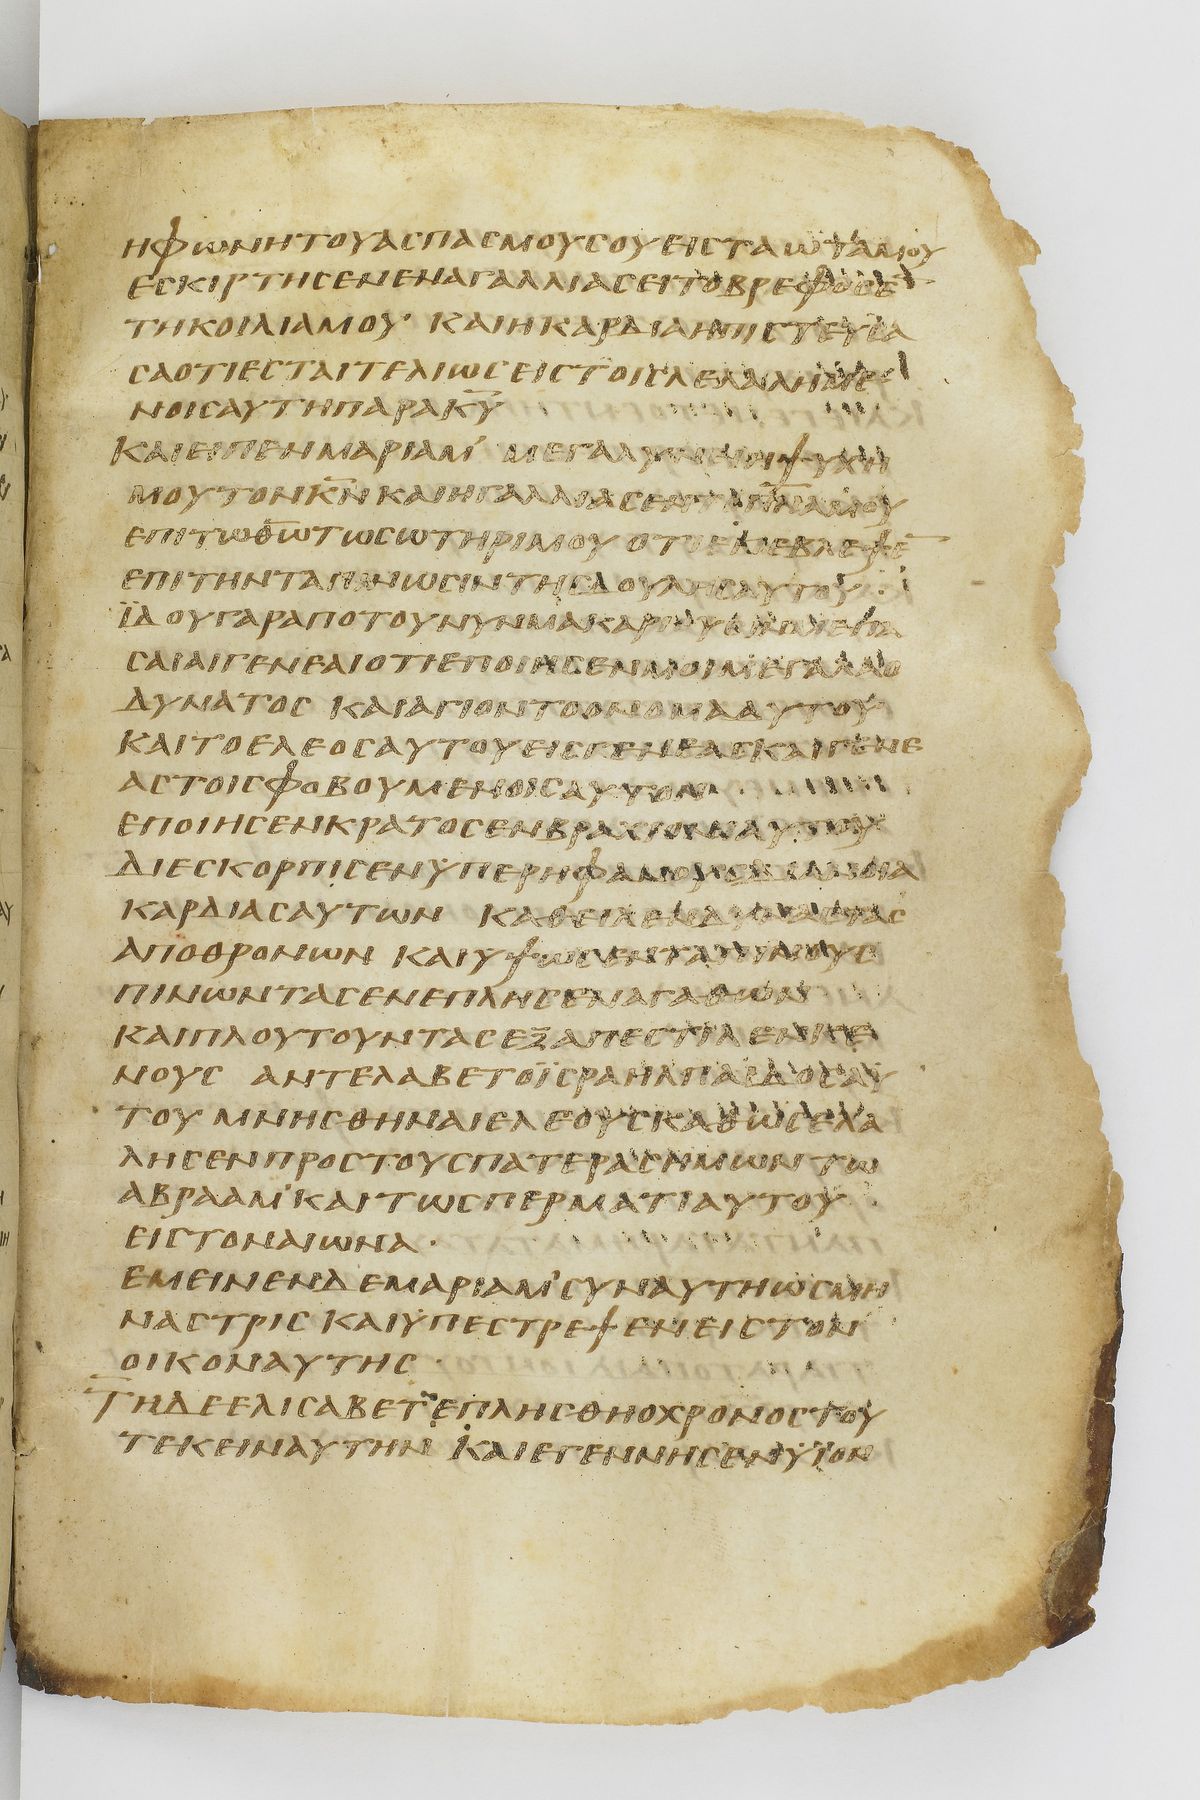 ΗΦΩΝΗΤΟΥΑϹΠΑϹΜΟΥϹΟΥΕΙϹΤΑΩΤΑΜΟΥ
ΕϹΚΙΡΤΗϹΕΝΕΝΑΓΑΛΛΙΑϹΕΙΤΟΒΡΕΦΟϹΕ
ΤΗΚΟΙΛΙΑΜΟΥ ΚΑΙΗΚΑΡΔΙΑΗΠΙϹΤΕΥϹΑ
ϹΑΟΤΙΕϹΤΑΙΤΕΛΙΩϹΕΙϹΤΟΙϹΛΕΛΑΛΗΜΕ
ΝΟΙϹΑΥΤΗΠΑΡΑΚ̅Υ̅
ΚΑΙΕΙΠΕΝΜΑΡΙΑΜ’ ΜΕΓΑΛΥΝΕΙΗΨΥΧΗ
ΜΟΥΤΟΝΚ̅Ν̅ΚΑΙΗΓΑΛΛΙΑϹΕΝΤΟΠ̅Ν̅Α̅ΜΟΥ
ΕΠΙΤΩΘ̅Ω̅ΤΩϹΩΤΗΡΙΜΟΥ ΟΤΙΕΠΕΒΛΕΨΕ̅
ΕΠΙΤΗΝΤΑΠΙΝΩϹΙΝΤΗϹΔΟΥΛΗϹΑΥΤΟΥ·
ΪΔΟΥΓΑΡΑΠΟΤΟΥΝΥΝΜΑΚΑΡΙΟΥϹΙΝΜΕΠΑ
ϹΑΙΑΙΓΕΝΕΑΙΟΤΙΕΠΟΙΗϹΕΝΜΟΙΜΕΓΑΛΑΟ
ΔΥΝΑΤΟϹ ΚΑΙΑΓΙΟΝΤΟΟΝΟΜΑΑΥΤΟΥ
ΚΑΙΤΟΕΛΕΟϹΑΥΤΟΥΕΙϹΓΕΝΕΑϹΚΑΙΓΕΝΕ
ΑϹΤΟΙϹΦΟΒΟΥΜΕΝΟΙϹΑΥΤΟΝ
ΕΠΟΙΗϹΕΝΚΡΑΤΟϹΕΝΒΡΑΧΙΟΝΙΑΥΤΟΥ
ΔΙΕϹΚΟΡΠΙϹΕΝΫΠΕΡΗΦΑΝΟΥϹΔΙΑΝΟΙΑ
ΚΑΡΔΙΑϹΑΥΤΩΝ ΚΑΘΕΙΛΕΝΔΥΝΑϹΤΑϹ
ΑΠΟΘΡΟΝΩΝ ΚΑΙΥΨΩϹΕΝΤΑΠΙΝΟΥϹ
ΠΙΝΩΝΤΑϹΕΝΕΠΛΗϹΕΝΑΓΑΘΩΝ
ΚΑΙΠΛΟΥΤΟΥΝΤΑϹΕΞΑΠΕϹΤΙΛΕΝΚΕ
ΝΟΥϹ ΑΝΤΕΛΑΒΕΤΟΪϹΡΑΗΛΠΑΙΔΟϹΑΥ
ΤΟΥ ΜΝΗϹΘΗΝΑΙΕΛΕΟΥϹΚΑΘΩϹΕΛΑ
ΛΗϹΕΝΠΡΟϹΤΟΥϹΠΑΤΕΡΑϹΗΜΩΝΤΩ
ΑΒΡΑΑΜ’ΚΑΙΤΩϹΠΕΡΜΑΤΙΑΥΤΟΥ
ΕΙϹΤΟΝΑΙΩΝΑ·
ΕΜΕΙΝΕΝΔΕΜΑΡΙΑΜ’ϹΥΝΑΥΤΗΩϹΜΗ
ΝΑϹΤΡΙϹ ΚΑΙΫΠΕϹΤΡΕΨΕΝΕΙϹΤΟΝ
ΟΙΚΟΝΑΥΤΗϹ·
ΤΗΔΕΕΛΙϹΑΒΕΤ’ΕΠΛΗϹΘΗΟΧΡΟΝΟϹΤΟΥ
ΤΕΚΕΙΝΑΥΤΗΝ ΚΑΙΕΓΕΝΝΗϹΕΝΫΙΟΝ